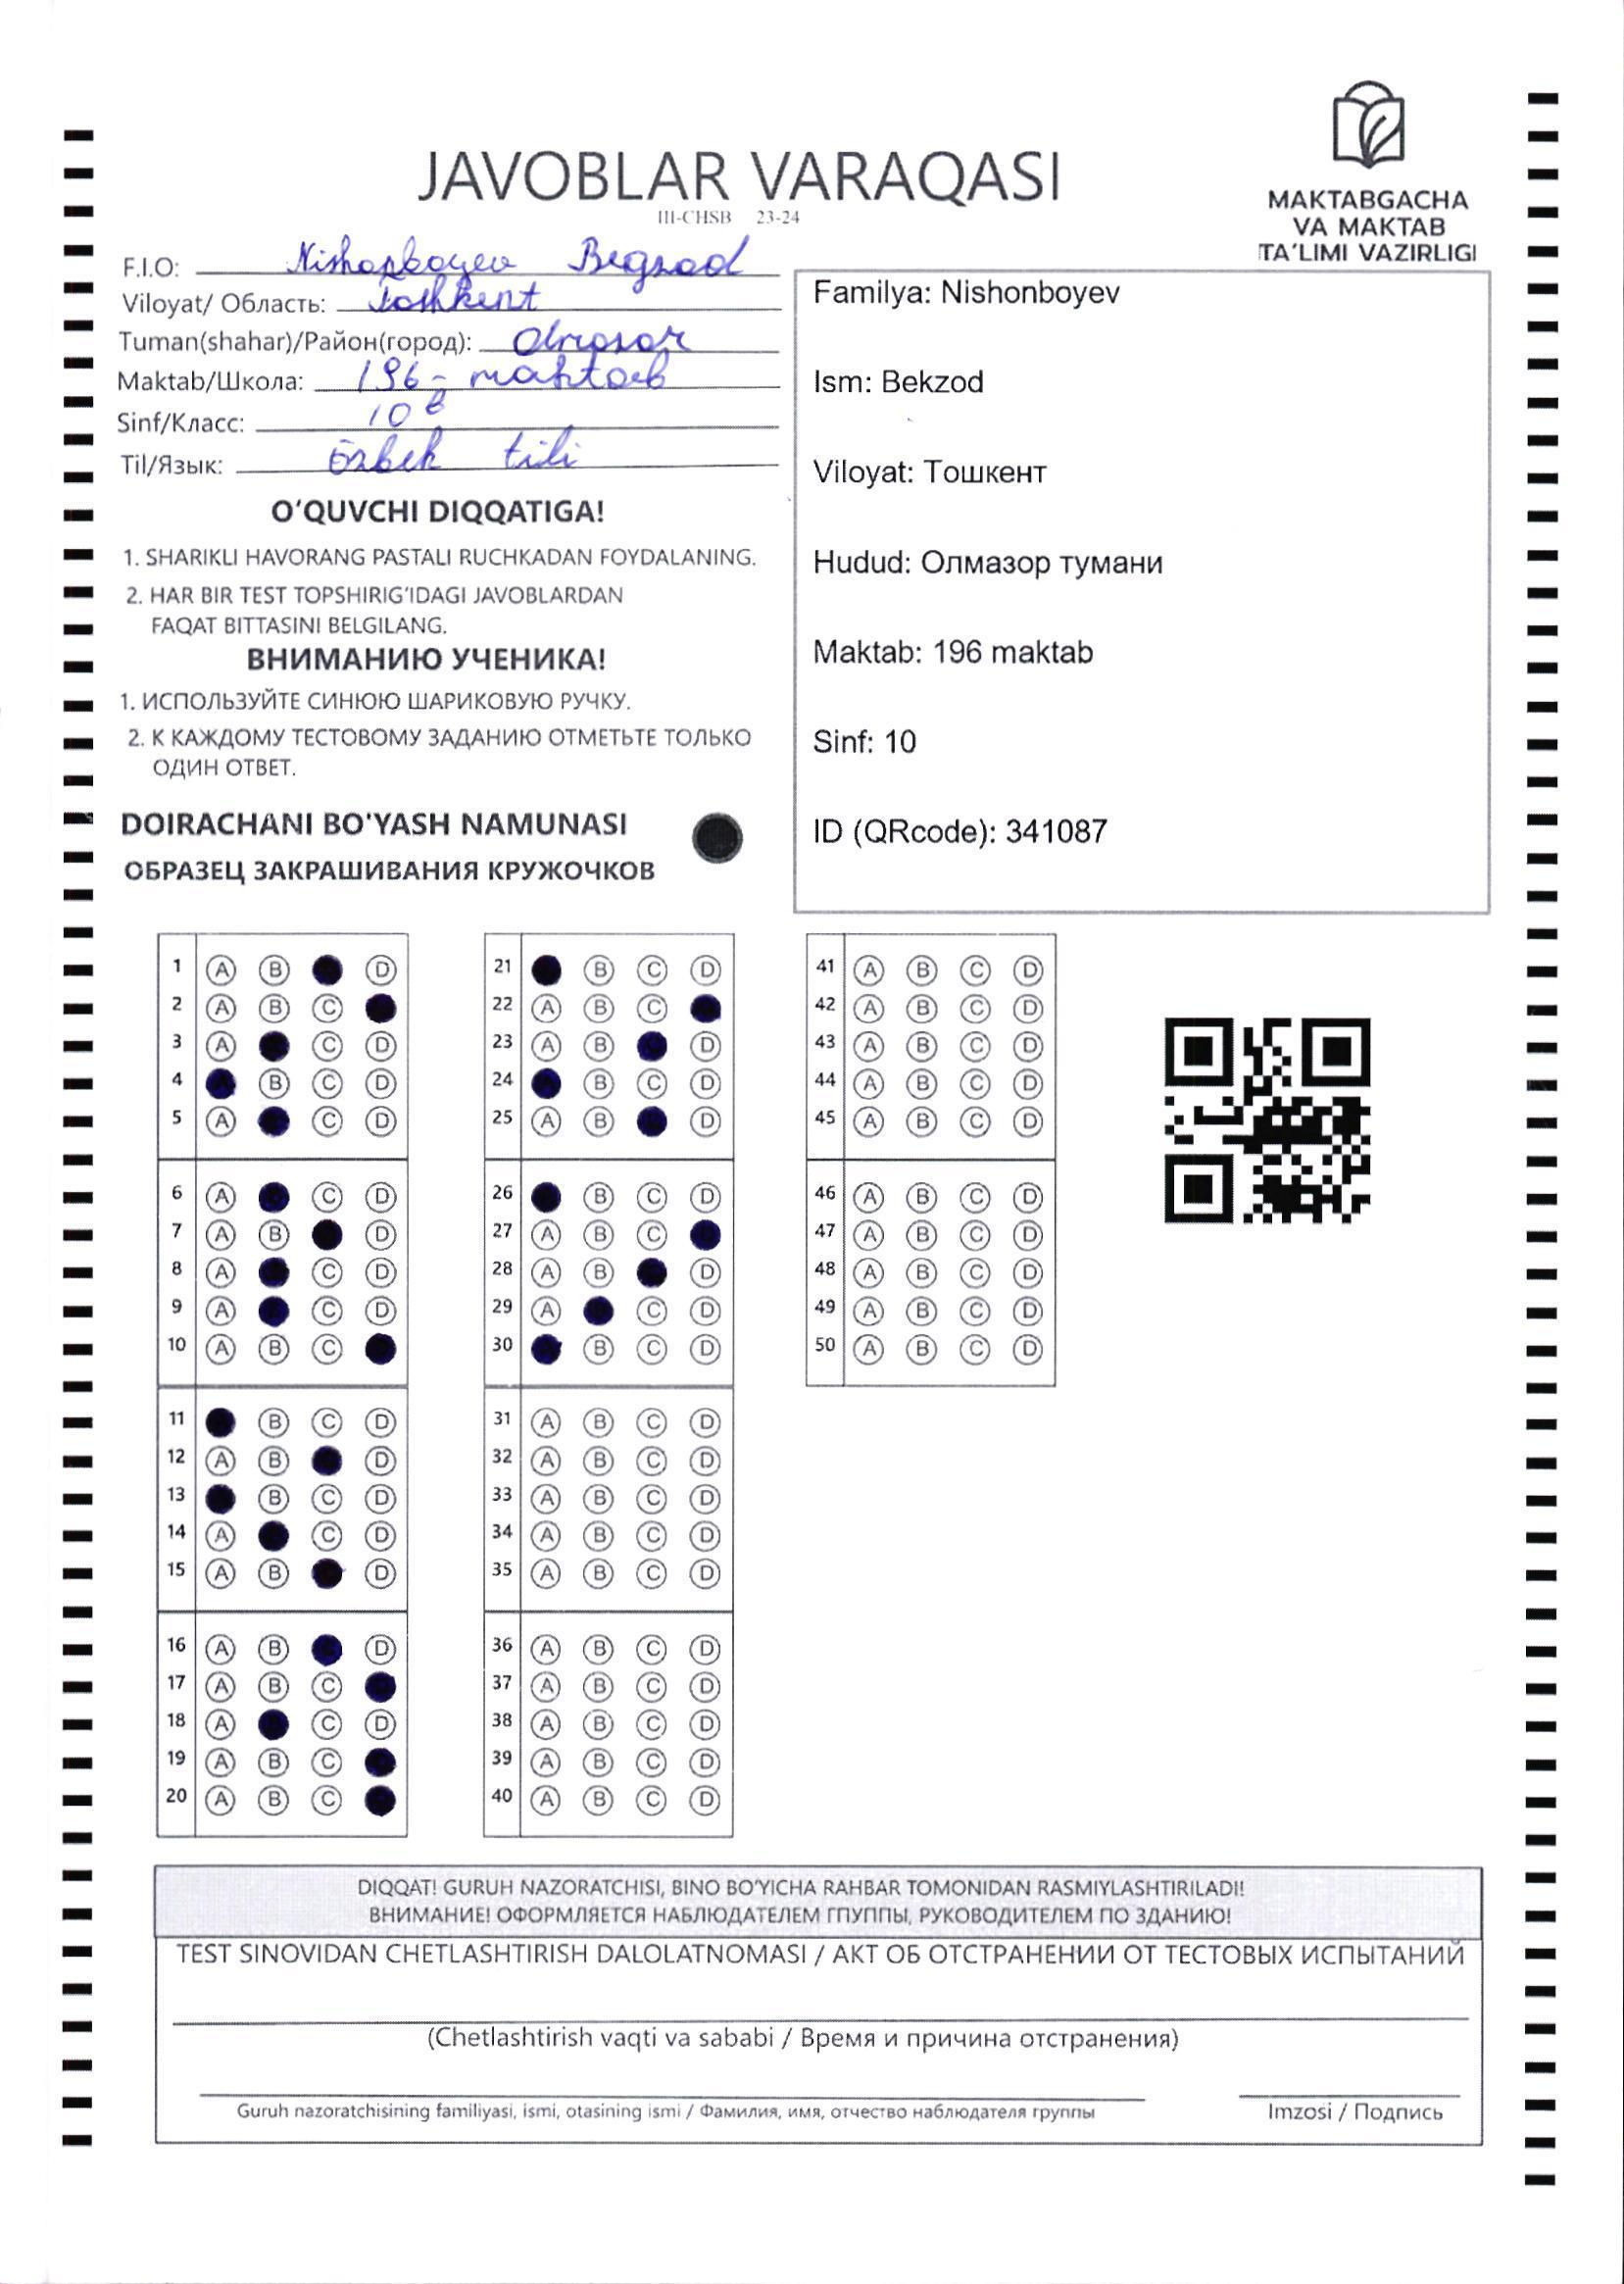 JAVOBLAR VARAQASI
III-CHSB 23-24
MAKTABGACHA
VA MAKTAB
TA'LIMI VAZIRLIGI
F.I.O: Nishonboyev Begzod
Viloyat/ Область: Toshkent
Tuman(shahar)/Район(город): Olmosor
Maktab/Школа: 196- maktab
Sinf/Класс: 10 B
Til/Язык: Özbek tili
O'QUVCHI DIQQATIGA!
1. SHARIKLI HAVORANG PASTALI RUCHKADAN FOYDALANING.
2. HAR BIR TEST TOPSHIRIG'IDAGI JAVOBLARDAN
FAQAT BITTASINI BELGILANG.
ВНИМАНИЮ УЧЕНИКА!
1. ИСПОЛЬЗУЙТЕ СИНЮЮ ШАРИКОВУЮ РУЧКУ.
2. К КАЖДОМУ ТЕСТОВОМУ ЗАДАНИЮ ОТМЕТЬТЕ ТОЛЬКО
ОДИН ОТВЕТ.
DOIRACHANI BO'YASH NAMUNASI
ОБРАЗЕЦ ЗАКРАШИВАНИЯ КРУЖОЧКОВ
Familya: Nishonboyev
Ism: Bekzod
Viloyat: Тошкент
Hudud: Олмазор тумани
Maktab: 196 maktab
Sinf: 10
ID (QRcode): 341087
1 A B D
2 A B C
3 A C D
4 B C D
5 A C D
6 A C D
7 A B D
8 A C D
9 A C D
10 A B C
11 B C D
12 A B D
13 B C D
14 A C D
15 A B D
16 A B D
17 A B C
18 A C D
19 A B C
20 A B C
21 B C D
22 A B C
23 A B D
24 B C D
25 A B D
26 B C D
27 A B C
28 A B D
29 A C D
30 B C D
31 A B C D
32 A B C D
33 A B C D
34 A B C D
35 A B C D
36 A B C D
37 A B C D
38 A B C D
39 A B C D
40 A B C D
41 A B C D
42 A B C D
43 A B C D
44 A B C D
45 A B C D
46 A B C D
47 A B C D
48 A B C D
49 A B C D
50 A B C D
DIQQAT! GURUH NAZORATCHISI, BINO BO'YICHA RAHBAR TOMONIDAN RASMIYLASHTIRILADI!
ВНИМАНИЕ! ОФОРМЛЯЕТСЯ НАБЛЮДАТЕЛЕМ ГПУППЫ, РУКОВОДИТЕЛЕМ ПО ЗДАНИЮ!
TEST SINOVIDAN CHETLASHTIRISH DALOLATNOMASI / АКТ ОБ ОТСТРАНЕНИИ ОТ ТЕСТОВЫХ ИСПЫТАНИЙ
(Chetlashtirish vaqti va sababi / Время и причина отстранения)
Guruh nazoratchisining familiyasi, ismi, otasining ismi / Фамилия, имя, отчество наблюдателя группы
Imzosi / Подпись